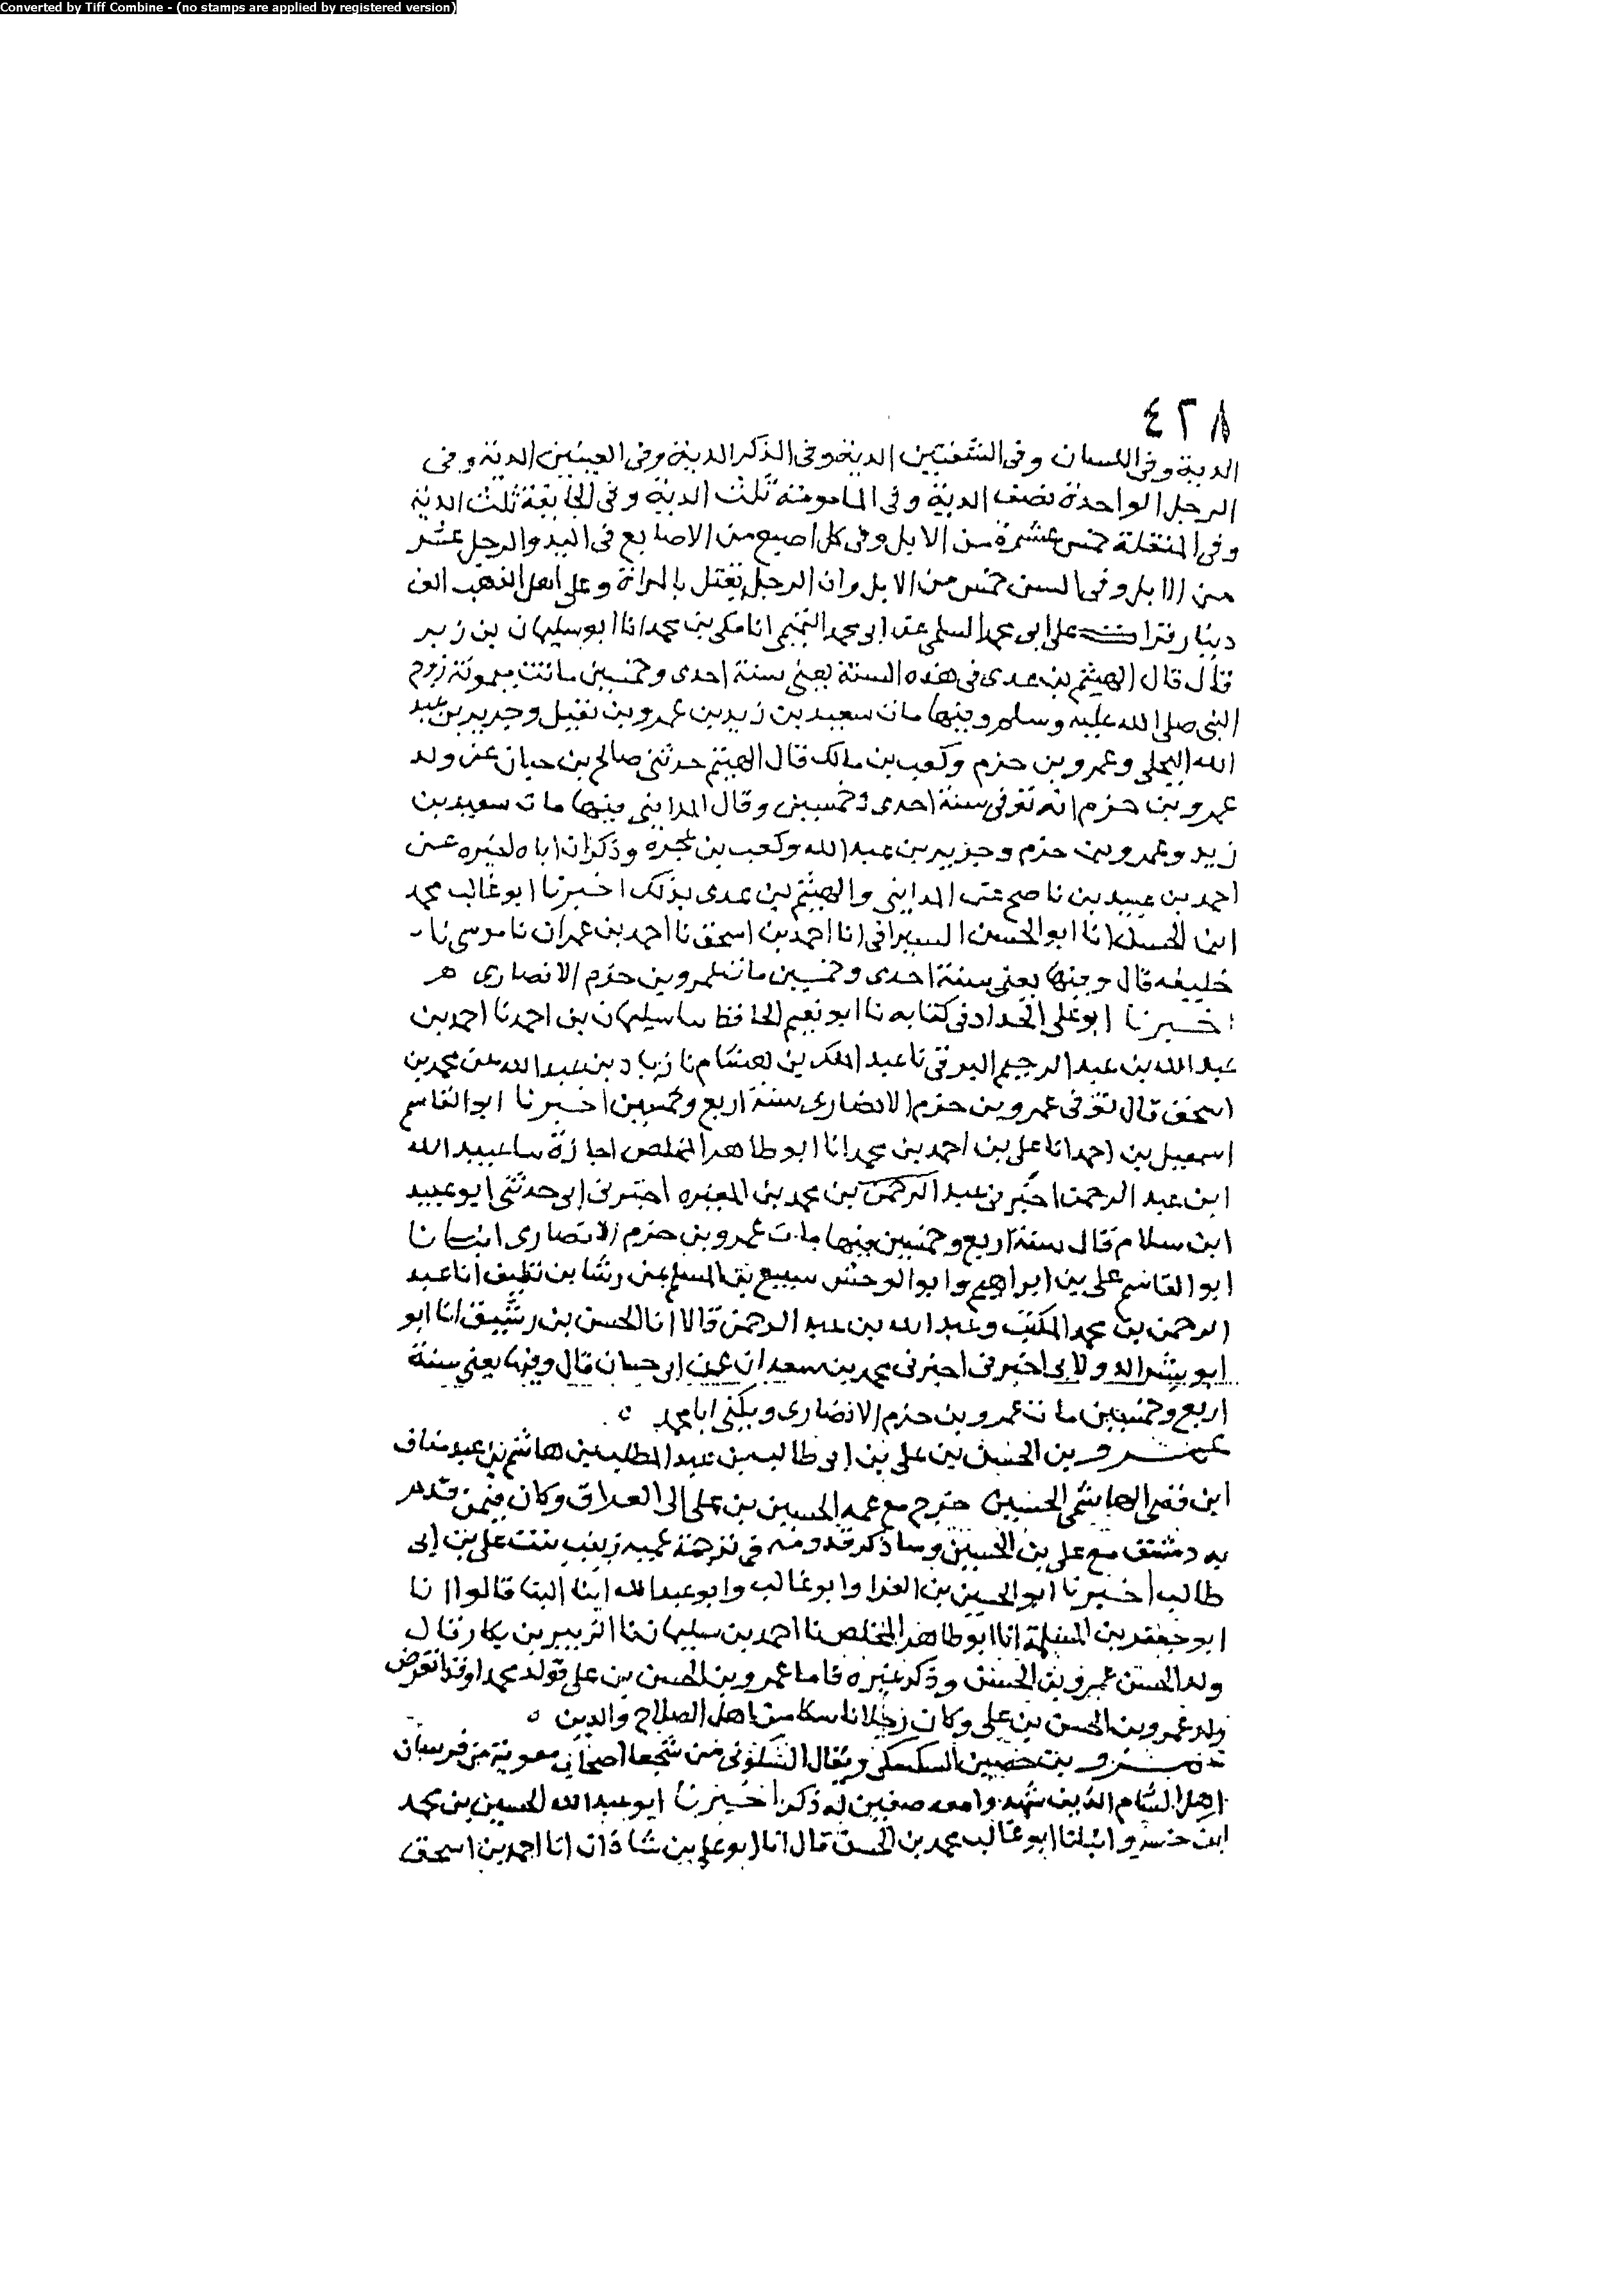 Converted by Tiff Combine - (no stamps are applied by registered version)
٤٢٨
الدية وفى اللسان وفى الشفتين الدية وفى الذكر الدية وفى العينين الدية وفى
الرجل الواحدة نصف الدية وفى المامومة ثلث الدية وفى الجايفة ثلث الدية
وفى المنقلة خمس عشرة من الابل وفى كل اصبع من الاصابع فى اليد والرجل عشر
من الابل وفى السن خمس من الابل وان الرجل يقتل بالمراة وعلى اهل الذهب الف
دينار قرا على ابى محمد السلمى عن ابى محمد التميمى انا مكى بن محمد انا ابو سليمان بن زبر
قال قال الهيثم بن عدى فى هذه السنة يعنى سنة احدى وخمسين ماتت ميمونة زوج
النبى صلى الله عليه وسلم وفيها مات سعيد بن زيد بن عمرو بن نفيل وجرير بن عبد
الله البجلى وعمرو بن حزم وكعب بن مالك قال الهيثم حدثنى صالح بن حيان عن ولد
عمرو بن حزم انه توفى سنة احدى وخمسين وقال المداينى فيها مات سعيد بن
زيد وعمرو بن حزم وجرير بن عبد الله وكعب بن عجرة وذكر ان اباه اخبره عن
احمد بن عبيد بن ناصح عن المداينى والهيثم بن عدى بذلك اخبرنا ابو غالب محمد
ابن الحسن انا ابو الحسن السيرافى انا احمد بن اسحق نا احمد بن عمران نا موسى نا
خليفه قال وفيها يعنى سنة احدى وخمسين مات عمرو بن حزم الانصارى
اخبرنا ابو على الحداد فى كتابه نا ابو نعيم الحافظ نا سليمان بن احمد نا احمد بن
عبد الله بن عبد الرحيم البرقى نا عبد الملك بن هشام نا زياد بن عبد الله عن محمد بن
اسحق قال توفى عمرو بن حزم الانصارى سنة اربع وخمسين اخبرنا ابو القاسم
اسمعيل بن احمد انا على بن احمد بن محمد انا ابو طاهر المخلص اجازة نا عبيد الله
ابن عبد الرحمن اخبرنى عبد الرحمن بن محمد بن المغيره اخبرنى ابى حدثنى ابو عبيد
ابن سلام قال سنة اربع وخمسين فيها مات عمرو بن حزم الانصارى انبانا
ابو القاسم على بن ابراهيم وابو الوحش سبيع بن المسلم عن رشا بن نظيف انا عبد
الرحمن بن محمد المكتب وعبد الله بن عبد الرحمن قالا انا الحسن بن رشيق انا ابو
ابو بشر الدولابى اخبرنى اخبرنى محمد بن سعدان عن ابى حسان قال وفيها يعنى سنة
اربع وخمسين مات عمرو بن حزم الانصارى ويكنى ابا محمد ه
عمرو بن الحسن بن على بن ابى طالب بن عبد المطلب بن هاشم بن عبد مناف
ابن قصى الهاشمى الحسين خرج مع عمه الحسين بن على الى العراق وكان فيمن قدم
به دمشق مع على بن الحسين وساذكر قدومه فى ترجمة عمته زينب بنت على بن ابى
طالب اخبرنا ابو الحسين بن الفرا وابو غالب وابو عبد الله ابنا البنا قالوا انا
ابو جعفر بن المسلمة انا ابو طاهر المخلص نا احمد بن سليمان نا الزبير بن بكار قال
ولد الحسن عمرو بن الحسن وذكر غيره فاما عمرو بن الحسن بن على فولد محمدا وقد انقرض
ولد عمرو بن الحسن بن على وكان رجلا ناسكا من اهل الصلاح والدين ه
عمرو بن حصين السكسكى ويقال السكونى من شجعا اصحاب معوية من فرسان
اهل الشام الذين شهدوا معه صفين له ذكر اخبرنا ابو عبد الله الحسين بن محمد
ابن خسرو انبانا ابو غالب محمد بن الحسن قال انا ابو على بن شاذان انا احمد بن اسحق